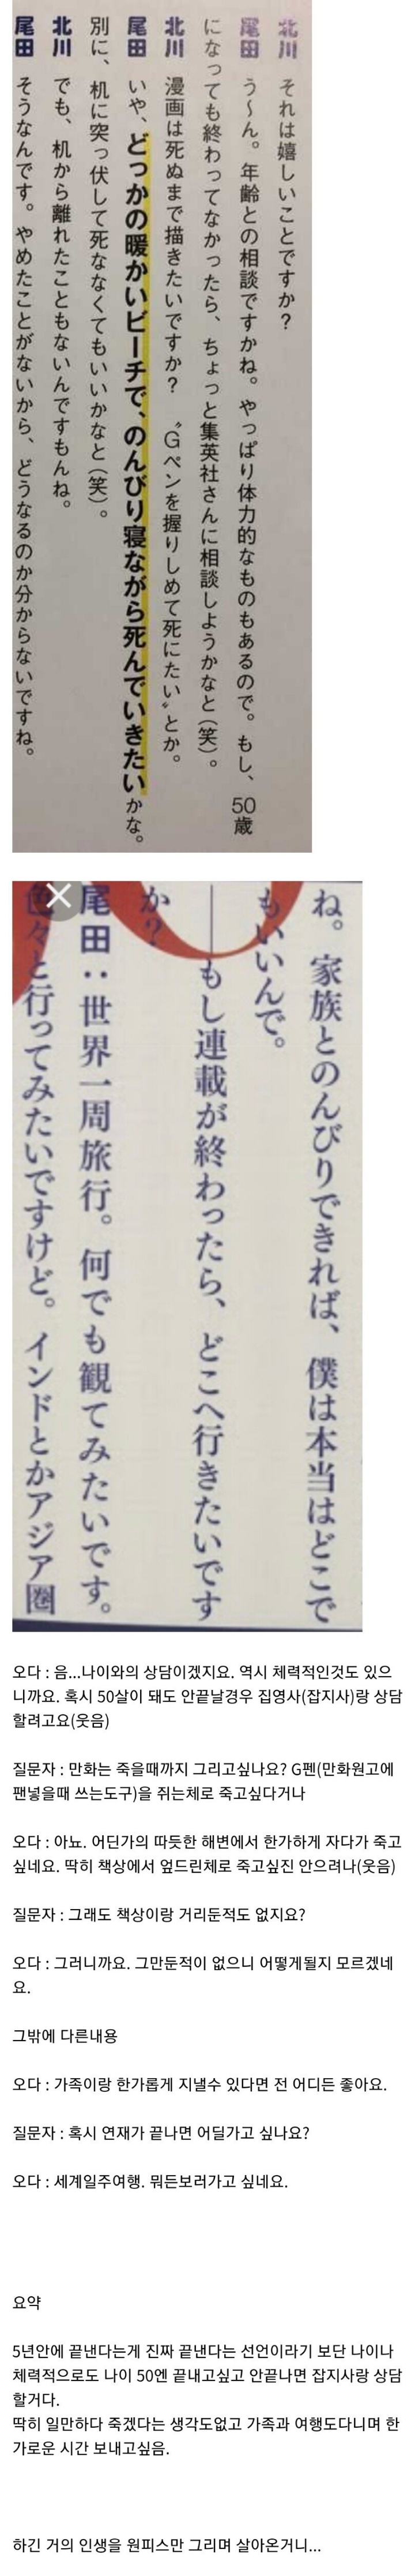 北川　それは嬉しいことですか？
尾田　う〜ん。年齢との相談ですかね。やっぱり体力的なものもあるので。もし、50歳
になっても終わってなかったら、ちょっと集英社さんに相談しようかなと（笑）。
北川　漫画は死ぬまで描きたいですか？　〝Gペンを握りしめて死にたい〟とか。
尾田　いや、どっかの暖かいビーチで、のんびり寝ながら死んでいきたいかな。
別に、机に突っ伏して死ななくてもいいかなと（笑）。
北川　でも、机から離れたこともないんですもんね。
尾田　そうなんです。やめたことがないから、どうなるのか分からないですね。
ね。家族とのんびりできれば、僕は本当はどこで
もいいんで。
──もし連載が終わったら、どこへ行きたいです
か？
尾田：世界一周旅行。何でも観てみたいです。
色々と行ってみたいですけど。インドとかアジア圏
오다 : 음...나이와의 상담이겠지요. 역시 체력적인것도 있으
니까요. 혹시 50살이 돼도 안끝날경우 집영사(잡지사)랑 상담
할려고요(웃음)
질문자 : 만화는 죽을때까지 그리고싶나요? G펜(만화원고에
팬넣을때 쓰는도구)을 쥐는체로 죽고싶다거나
오다 : 아뇨. 어딘가의 따듯한 해변에서 한가하게 자다가 죽고
싶네요. 딱히 책상에서 엎드린체로 죽고싶진 안으려나(웃음)
질문자 : 그래도 책상이랑 거리둔적도 없지요?
오다 : 그러니까요. 그만둔적이 없으니 어떻게될지 모르겠네
요.
그밖에 다른내용
오다 : 가족이랑 한가롭게 지낼수 있다면 전 어디든 좋아요.
질문자 : 혹시 연재가 끝나면 어딜가고 싶나요?
오다 : 세계일주여행. 뭐든보러가고 싶네요.
요약
5년안에 끝낸다는게 진짜 끝낸다는 선언이라기 보단 나이나
체력적으로도 나이 50엔 끝내고싶고 안끝나면 잡지사랑 상담
할거다.
딱히 일만하다 죽겠다는 생각도없고 가족과 여행도다니며 한
가로운 시간 보내고싶음.
하긴 거의 인생을 원피스만 그리며 살아온거니...